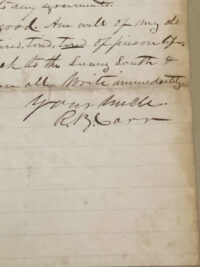 to any agreement.
good. Am well of my de
ired, tired, tired of prison life
ed to the Sunny South &
om all Write immediately.
Your Uncle.
R. B. Carr